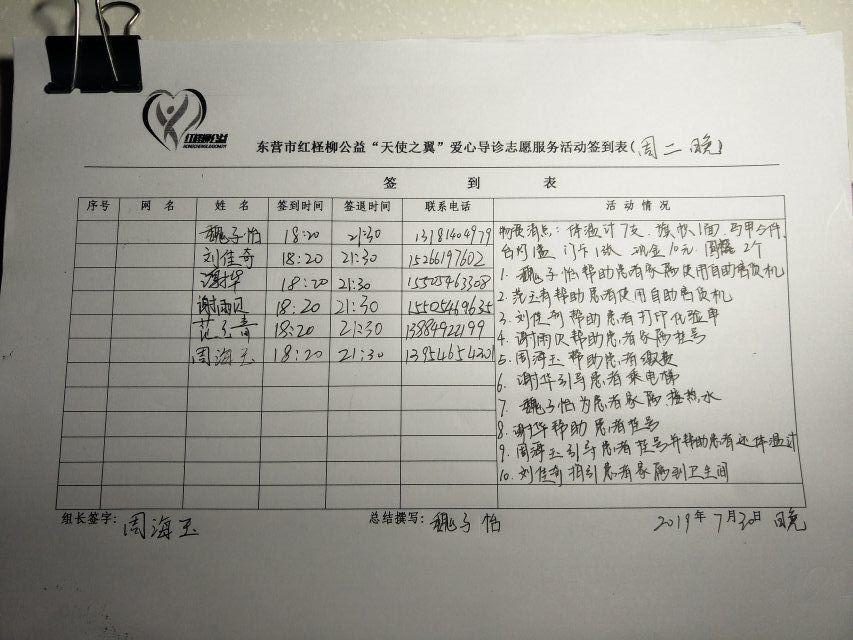 红柽柳公益
东营市红柽柳公益“天使之翼”爱心导诊志愿服务活动签到表(周二晚)
签 到 表
序号 网 名 姓 名 签到时间 签退时间 联系电话 活 动 情 况
魏子怡 18:20 21:30 13181404979
刘佳奇 18:20 21:30 15266197602
谢华 18:20 21:30 15505463308
谢雨 18:20 21:30 15505469635
范 青 18:20 21:30 13884922199
周海玉 18:20 21:30 13954654201
物资清点:体温计7支、旗帜1面、马甲 件、
台灯1盏 门卡1张 现金10元 2个
1. 魏子怡帮助患者家属使用自助售货机
2. 范 青帮助患者使用自助售货机
3. 刘佳奇帮助患者打印化验单
4. 谢雨 帮助患者家属挂号
5. 周海玉帮助患者缴费
6. 谢华引导患者乘电梯
7. 魏子怡为患者家属接热水
8. 谢华帮助患者挂号
9. 周海玉引导患者挂号并帮助患者还体温计
10. 刘佳奇指引患者家属到卫生间
组长签字: 周海玉 总结撰写: 魏子怡 2019年7月30日 晚